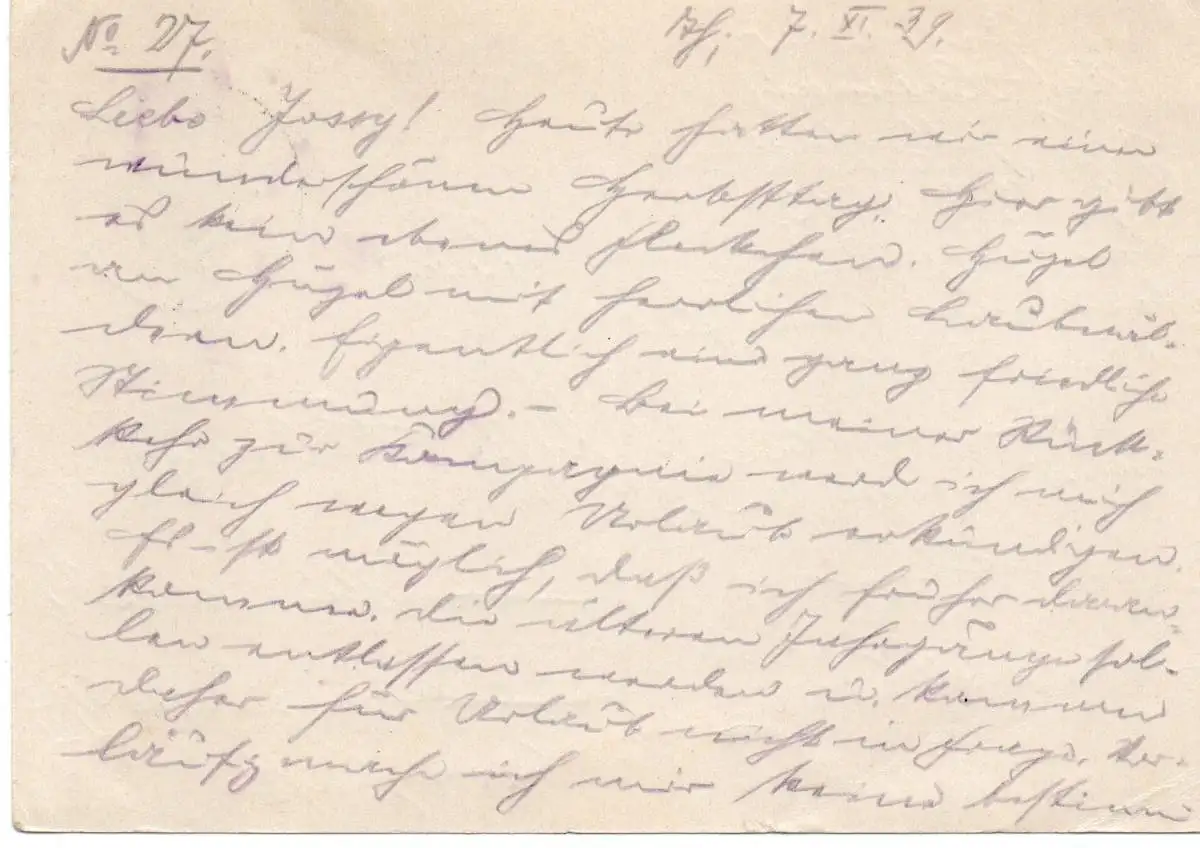 No 27. 7. XI. 39.
Liebe Jossy! Heute hatten wir einen
wunderschönen Herbsttag. Hier gibt
es kein ebenes Fleckchen. Hügel
an Hügel mit herrlichen Laubwäl-
dern. Eigentlich eine ganz friedliche
Stimmung. – Bei meiner Rück-
kehr zur Kompagnie werd ich mich
gleich wegen Urlaub erkundigen.
Es ist möglich, daß ich früher daran-
komme. Die älteren Jahrgänge sol-
len entlassen werden u. kommen
daher für Urlaub nicht in Frage. Vor-
läufig mache ich mir keine bestimm